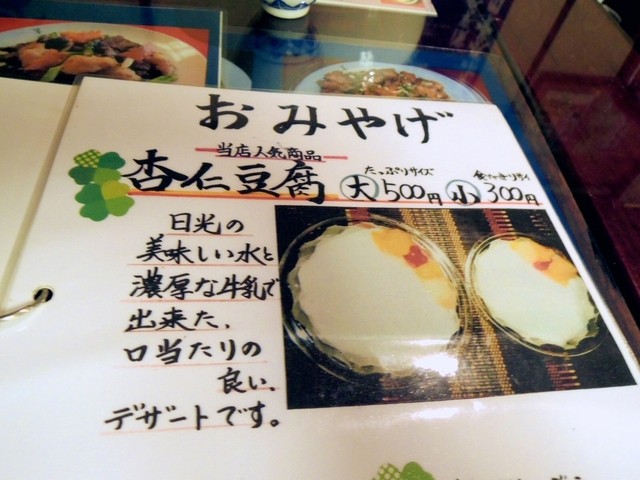 おみやげ
当店人気商品
杏仁豆腐
たっぷりサイズ
大 500円
小 300円
日光の
美味しい水と
濃厚な牛乳で
出来た、
口当たりの
良い、
デザートです。